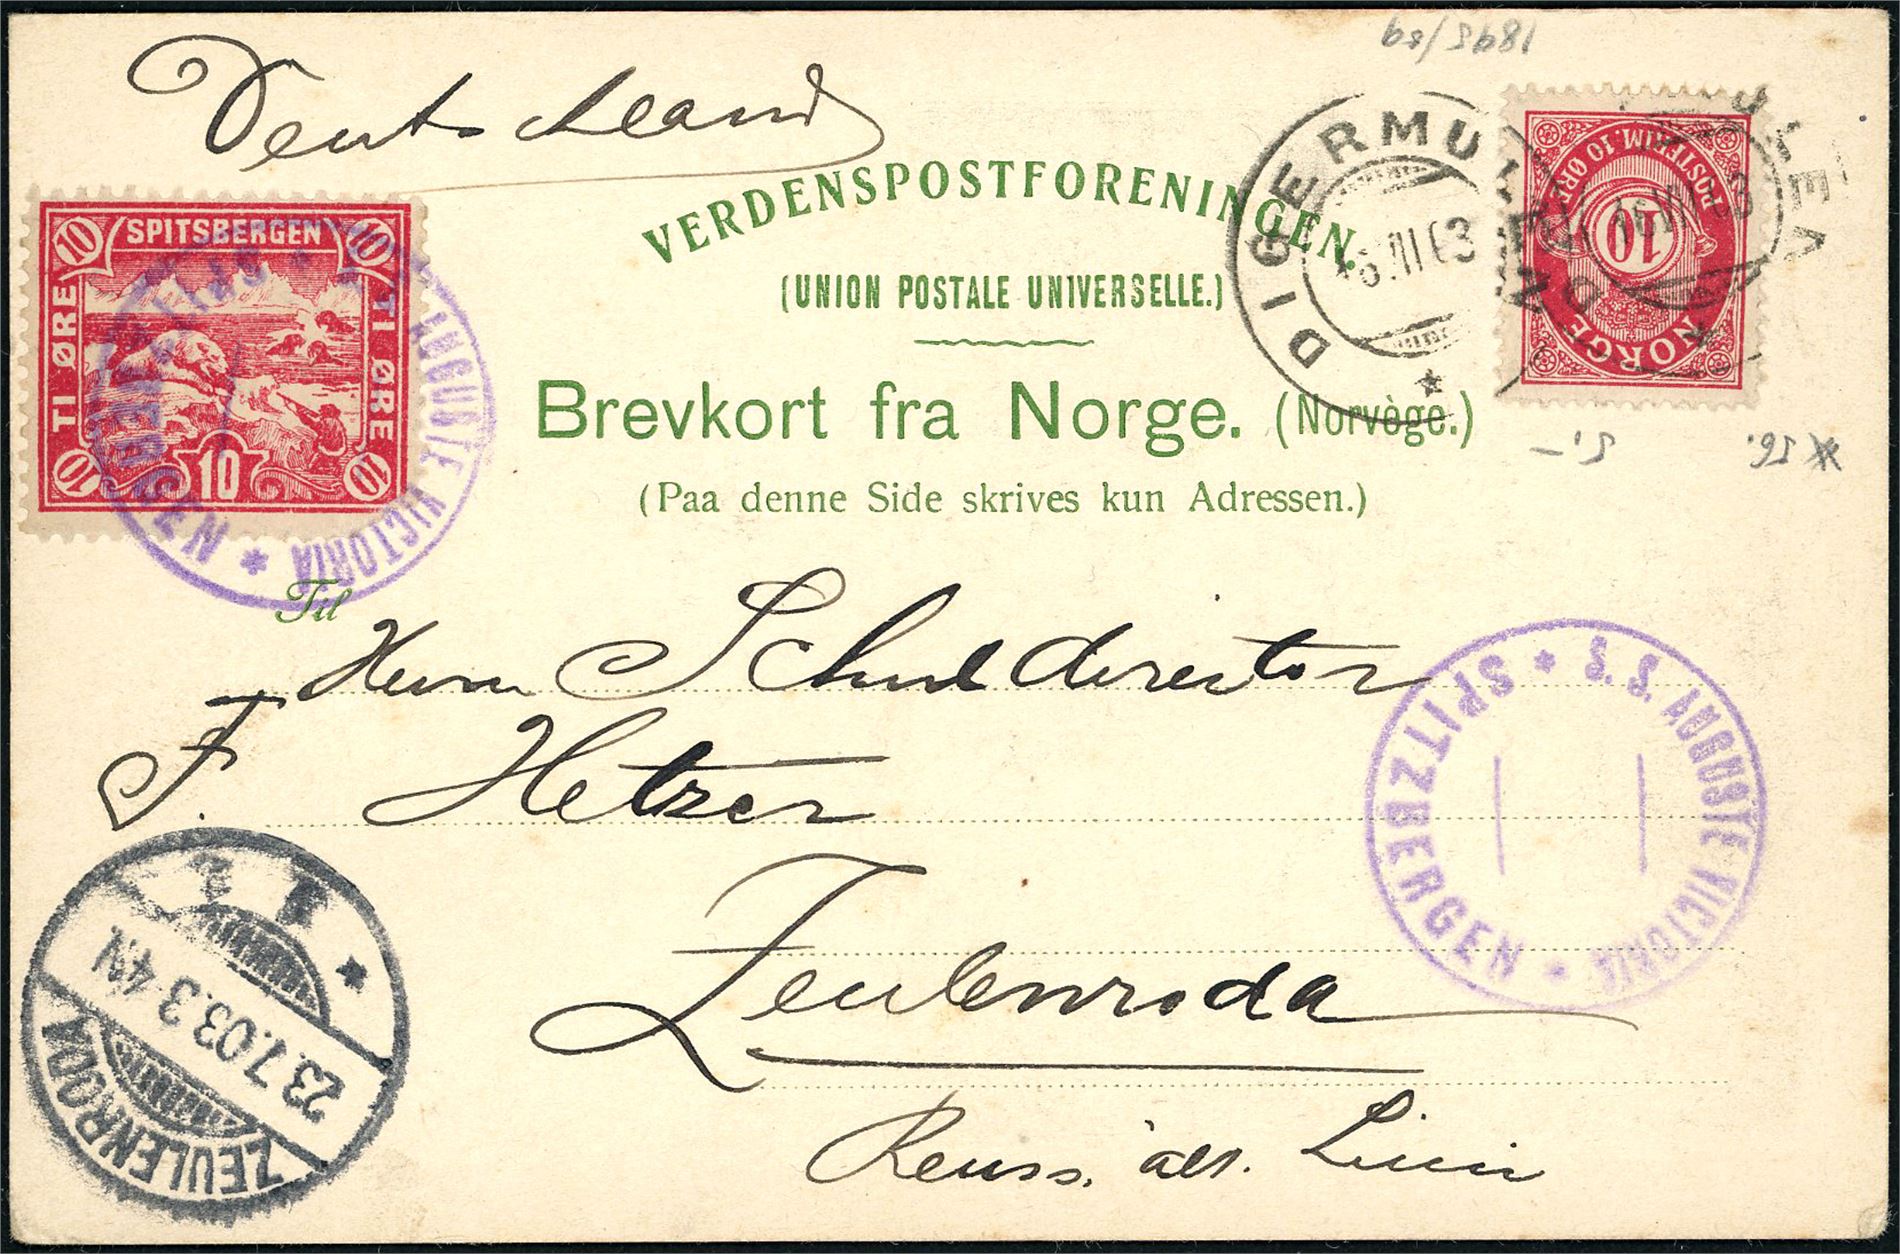 1895/99
Deutschland
VERDENSPOSTFORENINGEN.
(UNION POSTALE UNIVERSELLE.)
Brevkort fra Norge. (Norvège.)
(Paa denne Side skrives kun Adressen.)
10 SPITSBERGEN 10
TI ØRE
TI ØRE
10 10 10
AUGUSTE VICTORIA * SPITZBERGEN *
DIGERMULEN *
NORGE POSTFRIM. 10 ØRE
10
DIGERMULEN *
5.-
Til
Herrn Schuldirector
F. Hetzer
Zeulenroda
Reuss. ält. Linie
S. S. AUGUSTE VICTORIA * SPITZBERGEN *
ZEULENRODA
23.7.03.3-4N.